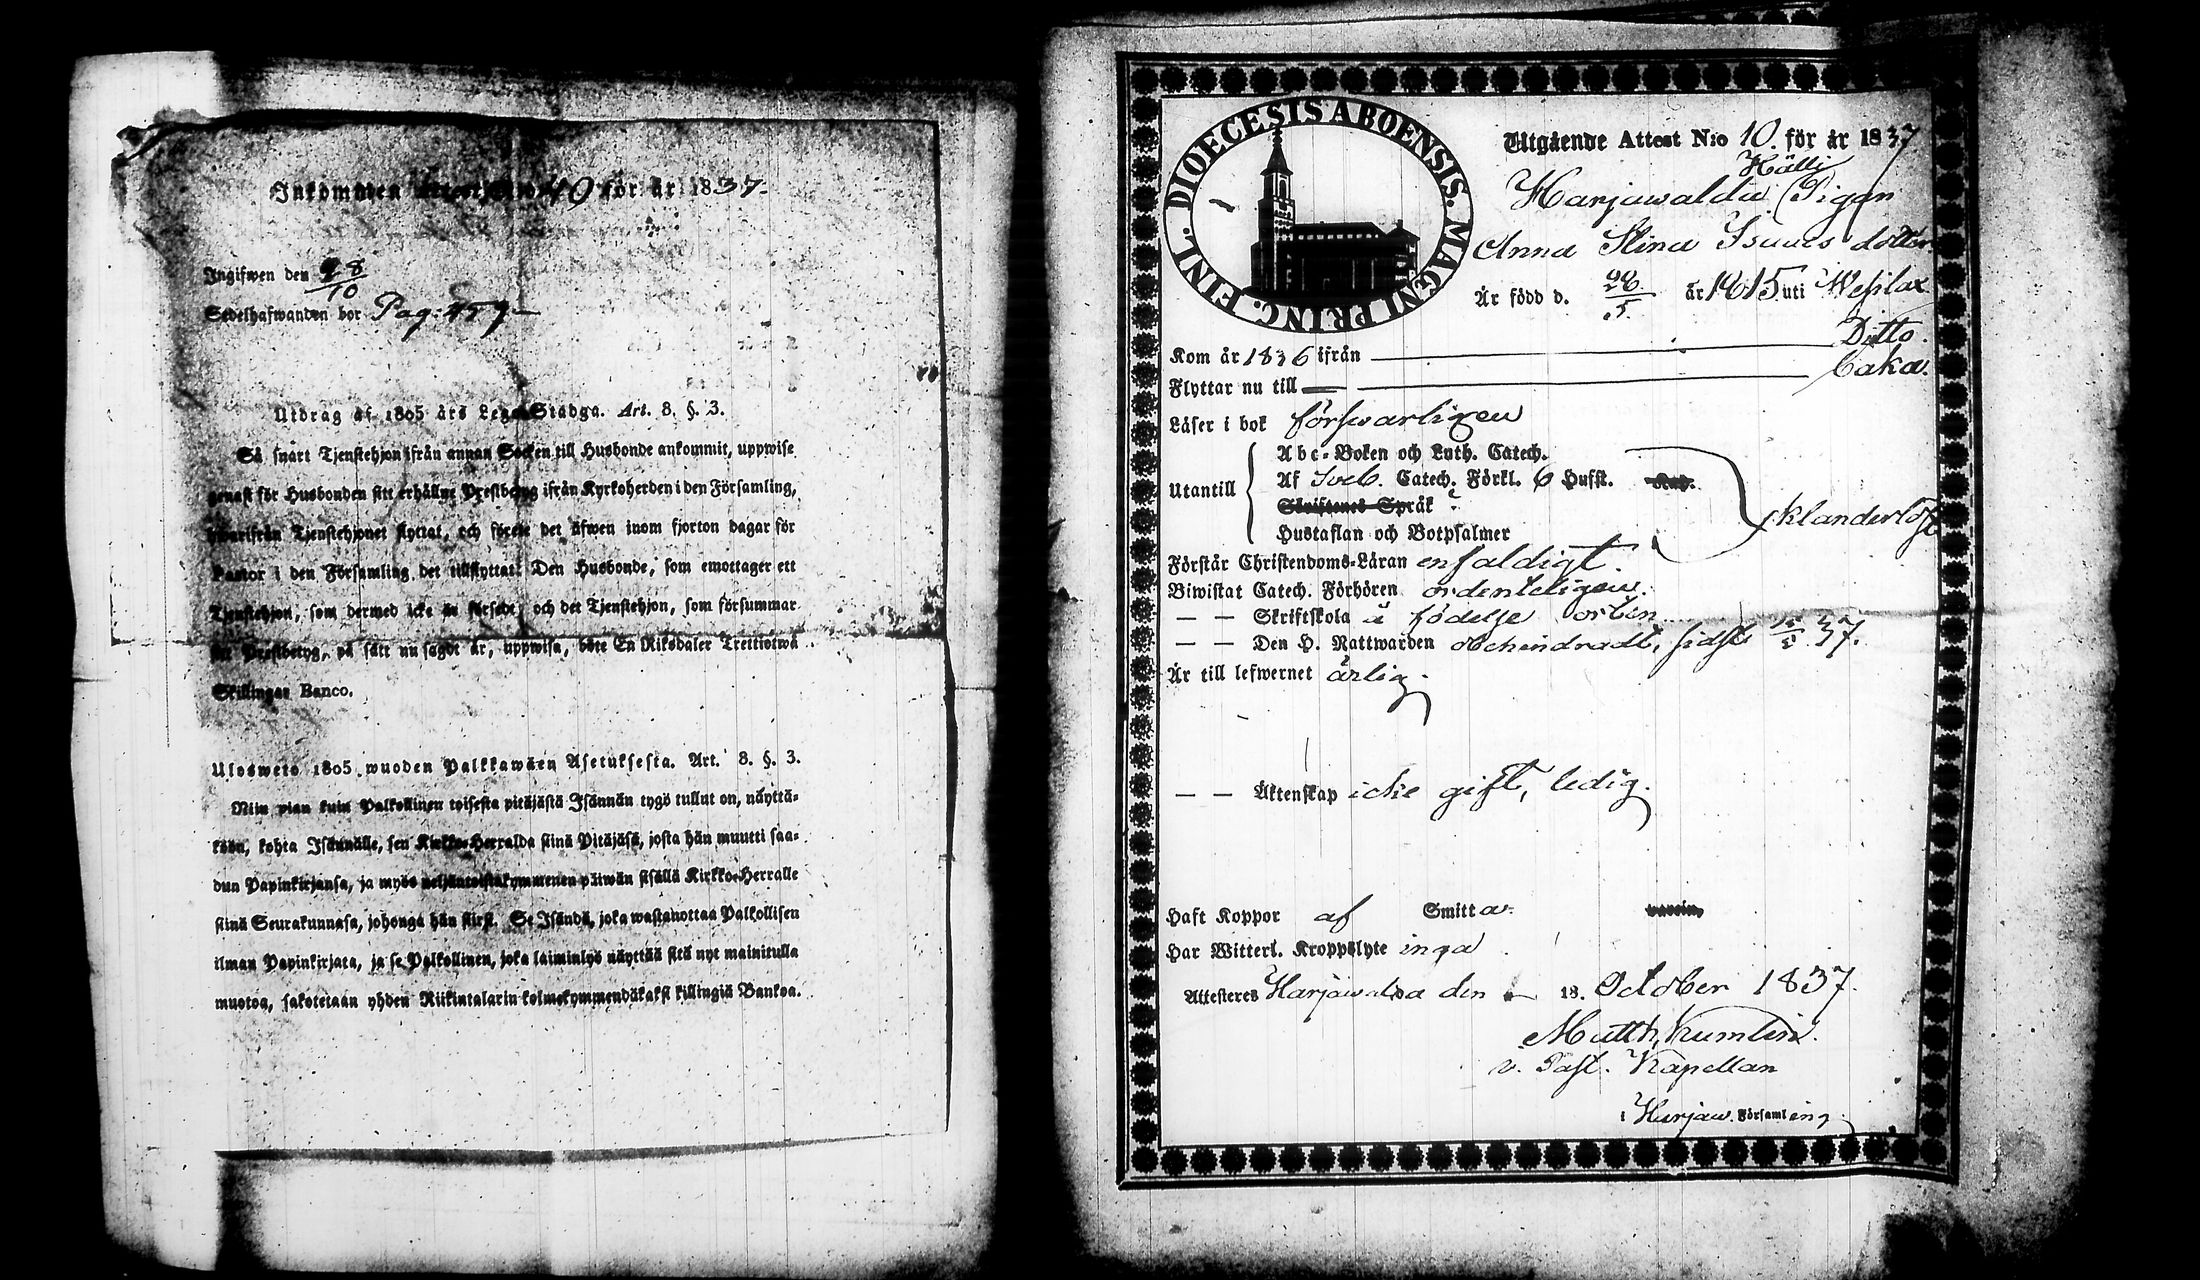 Inkommen Attest N:o 49 för år 1837.
Ingifwen den 28/10
Sedelhafwanden bor Pag: 457
Utdrag af 1805 års Lego-Stadga. Art. 8. §. 3.
Så snart Tjenstehjon ifrån annan Socken till Husbonde ankommit, uppwise
genast för Husbonden sitt erhållne Prestbetyg ifrån Kyrkoherden i den Församling,
hwarifrån Tjenstehjonet flyttat, och förete det äfwen inom fjorton dagar för
Pastor i den Församling det tillflyttat. Den Husbonde, som emottager ett
Tjenstehjon, som dermed icke är försedt, och det Tjenstehjon, som försummar
sitt Prestbetyg, på sätt nu sagdt är, uppwisa, böte En Riksdaler Trettiotwå
Skillingar Banco.
Ulosweto 1805 wuoden Palkkawäen Asetuksesta. Art. 8. §. 3.
Niin pian kuin Palkollinen toisesta pitäjästä Isännän tygö tullut on, näyttä-
köön, kohta Isännälle, sen Kirkko-Herralda siinä Pitäjäsä, josta hän muutti saa-
dun Papinkirjansa, ja myös neljäntoistakymmenen päiwän sisällä Kirkko-Herralle
siinä Seurakunnasa, johonga hän siirsi. Se Isändä, joka wastanottaa Palkollisen
ilman Papinkirjata, ja se Palkollinen, joka laiminlyö näyttää sitä nyt mainitulla
muotoa, sakotetaan yhden Riikintalarin kolmekymmendäkaksi killingiä Bankoa.
DIOECESIS ABOENSIS. MAGNI PRINC. FINL.
Utgående Attest N:o 10. för år 1837
Hälli
Harjawalda Pigan
Anna Stina Isaacs dotter
Är född d. 28/5. år 1815 uti Wesilax
Kom år 1836 ifrån Ditto.
Flyttar nu till Caka.
Läser i bok förswarligen
Utantill
Abc-Boken och Luth. Catech.
Af Sveb. Catech. Förkl. 6 Hufst.
Skriftenes Språk
Hustaflan och Botpsalmer
oklanderlgt
Förstår Christendoms-Läran enfaldigt.
Biwistat Catech. Förhören ordenteligen.
— — Skriftskola å födelse orten
— — Den H. Nattwarden obehindradt, sidst 15/5 37.
Är till lefwernet ärlig.
— — Äktenskap icke gift, ledig.
Haft Koppor af Smitta. vaccin.
Har Witterl. Kroppslyte inga
Attesteres Harjawalda den 18. October 1837.
Matth. Kumlin.
v. Past. Kapellan
i Harjaw. Församling